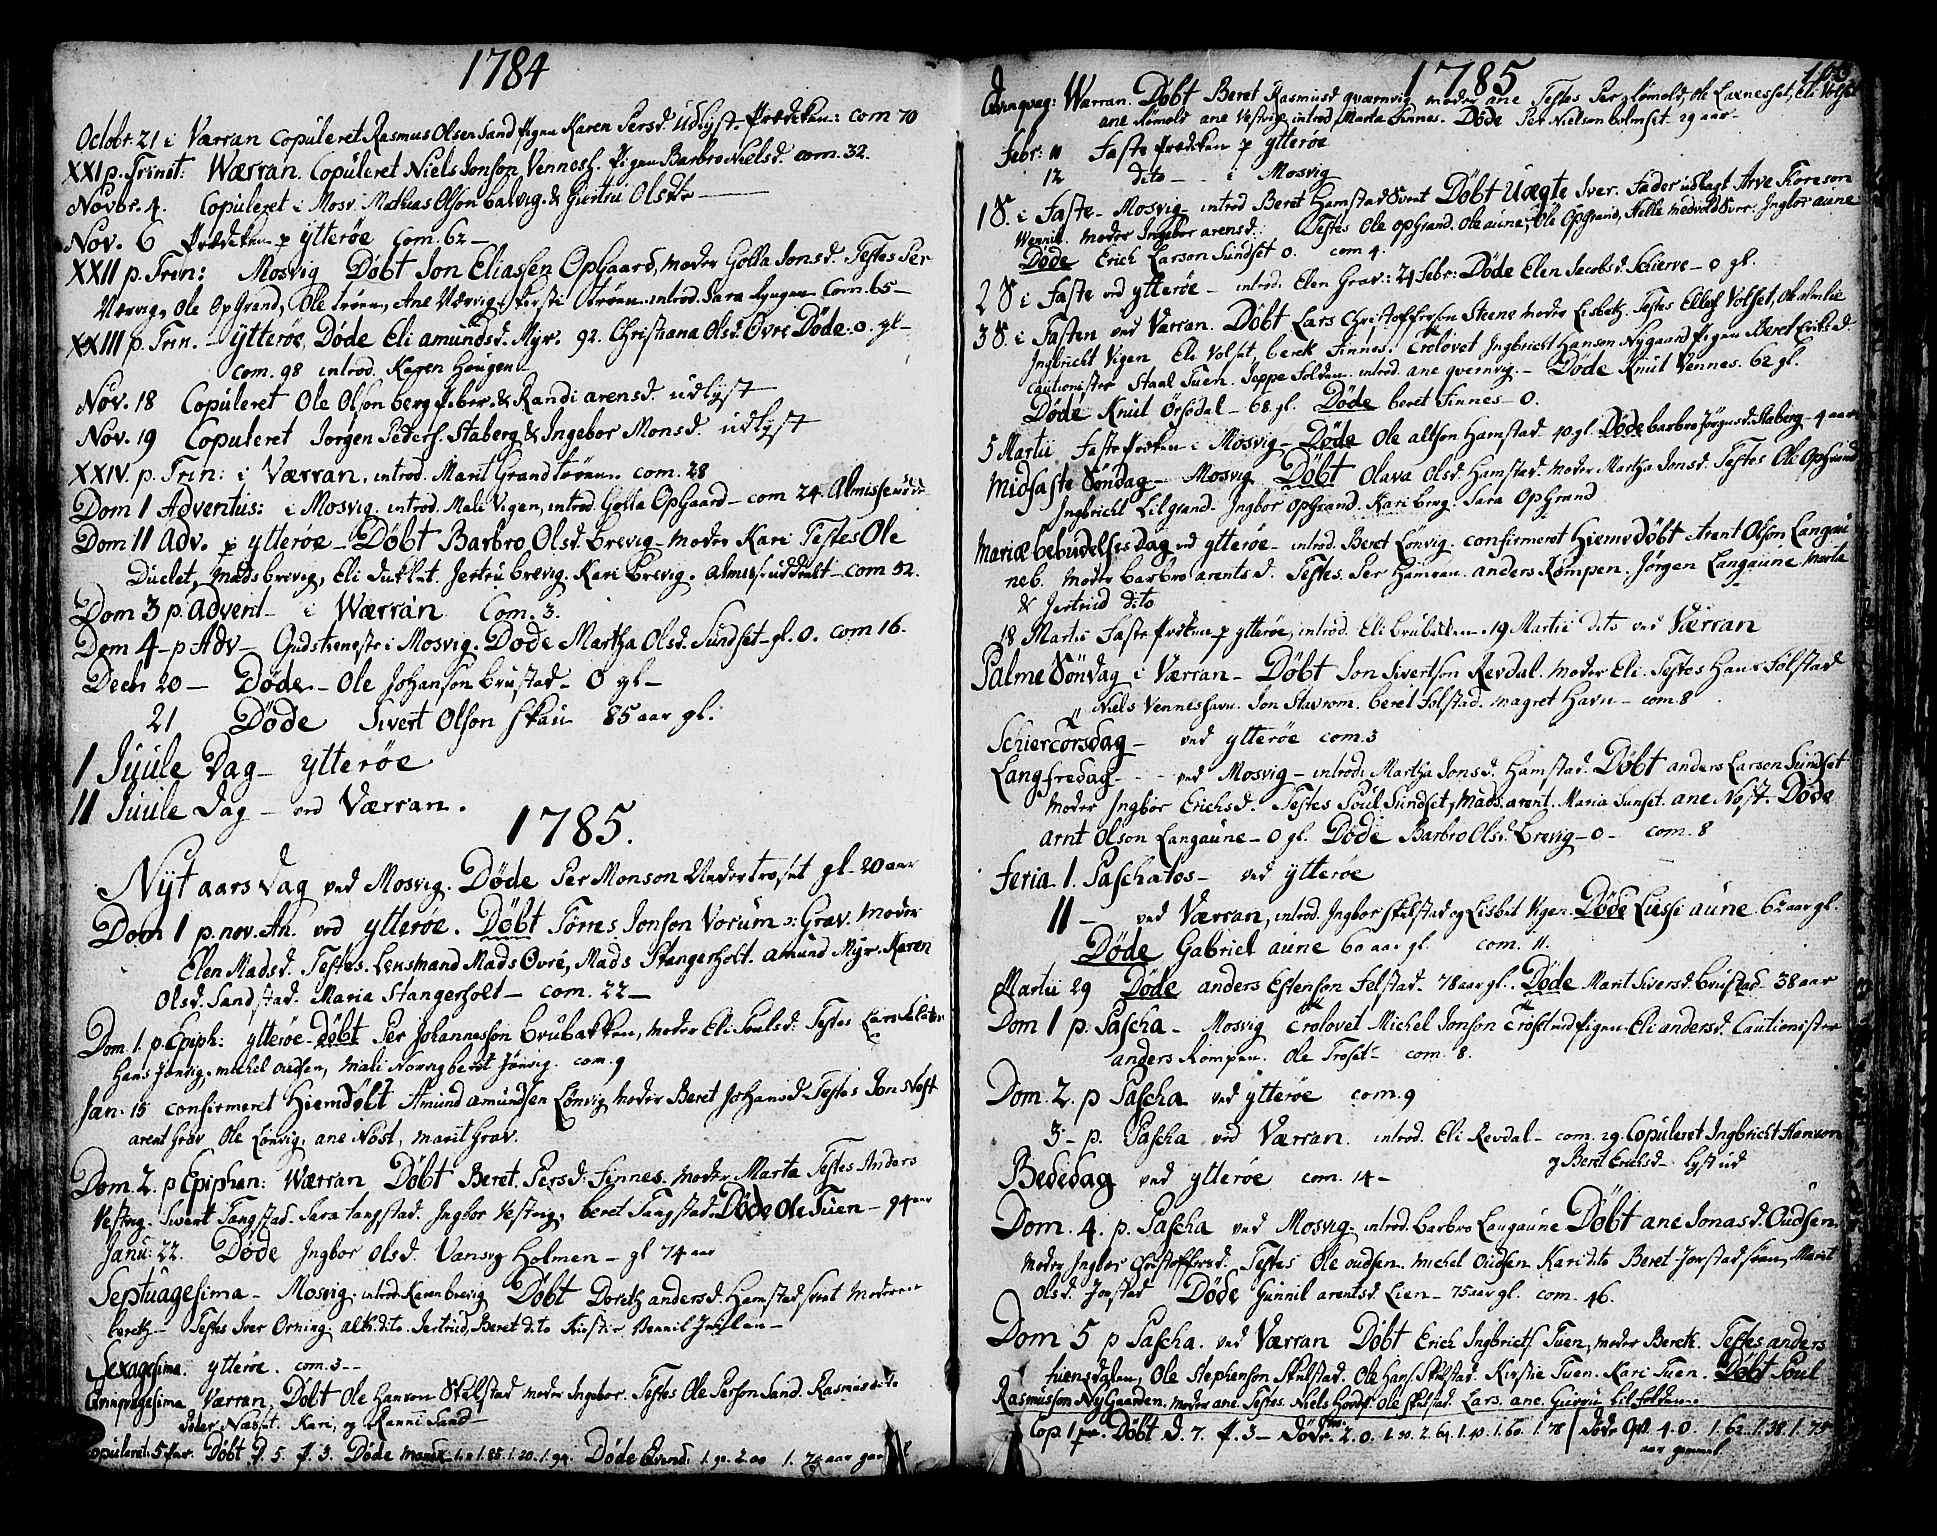 1784
Octobr. 21 i Værran Copuleret Rasmus Olsen Sand Pigen Karen Persd. Udlyst. Prædiken: com 70
XXI p. Trinit: Wærran. Copuleret Niels Jonson Venness. Pigen Barbro Nielsd. com. 32.
Novbr. 4. Copuleret i Mosv. Mathias Olson balvig & Giertru Olsdtr
Nov. 6 Prædiken p ytterøe Com. 62
XXII p. Trin: Mosvig Døbt Jon Eliassen OpGaard, moder Golla Jonsd. Testes Per
Nørvig, Ole OpGrand, Ole trøen, Ane Nørvig, Kirsti trøen. introd. Sara Com. 65
XXIII p. Trin. ytterøe, Døde Eli amundsd. Myr. 92. Christiana Olsd. Øvre Døde. 0. gl
com. 98 introd. Karen Haugen
Nov. 18 Copuleret Ole Olson berg P. ber. & Randi arensd. udlyst
Nov. 19 Copuleret Jorgen Peders. Staberg & Ingebor Monsd. udlyst
XXIV. p. Trin: i Værran, introd. Marit Grandtrøen. com. 28
Dom 1 Adventus: i Mosvig, introd. Mali Vigen, introd. Golla OpGaard com 24. Almisse
Dom 11 Adv. p ytterøe Døbt Barbro Olsd. brevig moder Kari Testes Ole
Duclet, Mads brevig, Eli Jertru brevig. Kari Brevig. almisse uddeelt com 52.
Dom 3 p. Advent i Wærran Com. 3.
Dom 4 p Adv Gudstieneste i Mosvig. Døde Martha Olsd. Sundset gl. 0. com 16.
Decb 20 Døde Ole Johanson brustad 0 gl
21 Døde Sivert Olson Skau 85 aar gl.
1 Juule Dag ytterøe
11 Juule Dag ved Værran.
1785.
Nyt aars Dag ved Mosvig. Døde Per Monson Undertroset gl. 20 aar
Dom 1 p. nov. An. ved ytterøe. Døbt Torres Jonson Vorum Grav. moder
Elen Madsd. Testes. Lensmand Mads Øvre, Mads Stangerholt. amund Myr. Karen
Olsd. Sandstad. Maria Stangerholt com. 22
Dom. 1. p. Epiph: ytterøe Døbt Per Johannesson brubakken, moder Eli Poulsd. Testes Lars
Hans Jønvig, michel oudsen, mali Norvig beret Jønvig. com. 9
Jan: 15 confirmeret Hiemdøbt Amund amundsen Lønvig moder Beret Johansd. Testes Jon Nøst
arent Grav Ole Lønvig, ane Nøst, marit Grav.
Dom. 2. p Epiphan: Wærran Døbt Beret Persd. Finnes. moder Marta Testes Anders
Vestvig. Sivert Tangstad. Sara tangstad. Ingbor Vestvig, beret Tangstad. Døde Ole Tuen 94 aar
Janu: 22. Døde Ingbor Olsd. Vansvig holmen gl 74 aar
Septuagesima Mosvig. introd. Karen brevig Døbt Doreth andersd. Hamstad svet moderen
bereth Testes Iver Orning, altk. dito. Jertrud, Beret dito Kirstie
Sexagesima ytterøe. com. 3
Qvinqvagesima Værran, Døbt Ole Hanson Skelstad moder Ingebor. Testes Ole Person Sand. Rasmus dito
Peder Næsset. Kari, og Ranni Sand
Copuleret: 5 Par. Døbt D. 5. P. 3. Døde mand 1. 85. 1. 20. 1. 94. Døde Qvend: 1. 92. 2. 00 1. 74 aar gam
1785
Qvinqvag: Warran. Døbt Beret Rasmusd qværnvig moder ane Testes Per Rømold, Ole Laxnesset, Eli Volset
ane Rømold ane Vestvig, introd Marta Finnes. Døde Per Nielson bolmset 29 aar
Febr: 11 Faste Prædiken p ytterøe
12 dito i Mosvig
1 S. i Faste Mosvig introd Beret Hamstad Svent Døbt Uægte Iver. Fader udlagt Arve Toreson
Wennil. Moder Ingebor arensd. Testes Ole OpGrand. Ole aune, Ole OpGrand, Ingbor aune
Døde Erich Larson Sundset 0. com 4.
2 S i Faste ved ytterøe introd. Elen Grav: 24 Febr: Døde Elen Jacobsd. Schierve 0 gl.
3 S. i Fasten ved Værran. Døbt Lars Christofferson Steene moder Lisbeth. Testes Ellef Volset, Ole almlie
Ingbricht Vigen Eli Volset, bereth Finnes. Trolovet Ingbricht Hanson Nygaard Pigen Beret Eriksd
Cautionister Staal Tuen. Jeppe Folden introd. ane qvernvig. Døde Knut Vennes. 62 gl.
Døde Knut Ørsødal 68 gl. Døde beret Finnes 0.
5 Martii Faste Preken i Mosvig Døde Ole altson Hamstad 40 gl. Døde barbro Jørgensd. Staberg 4 aar
Midfaste Søndag Mosvig Døbt Olava Olsd. Hamstad. moder Martha Jonsd. Testes Ole OpGrand
Ingbricht Lilgrand. Ingbor OpGrand. Kari berg. Sara OpGrand
Mariæ bebudelses Dag ved ytterøe introd. Beret Lønvig. confirmeret Hiemedøbt Arent Olson Langau
neb. moder barbro arentsd. Testes. Per Hamran. anders Rømpen. Jørgen Langaune marta
& Jertrud dito
18 Martii Faste Preken p ytterøe, introd. Eli brubakken 19 Martii dito ved Værran
Palme Søndag i Værran Døbt Jon Sivertson Revdal. moder Eli. Testes Hans Folstad
Niels Vennesshavn. Jon Stavrom. beret Folstad. magret Havn com. 8
Schiertorsdag ved ytterøe com. 3
Langfredag ved Mosvig introd. Martha Jonsd. Hamstad. Døbt anders Larson Sundset
moder Ingbor Erichsd. Testes Poul Sundset, Mads. arent. Maria Sunset. ane Nøst. Døde
arnt Olson Langaune 0 gl. Døde Barbro Olsd. Brevig 0 com. 8
Feria 1. Paschatos ved ytterøe
11 ved Værran, introd. Ingbor Skelstad og Lisbet Vigen. Døde Lusse aune 62 aar gl.
Døde Gabriel aune 60 aar gl. com. 11.
Martii 29 Døde anders Estenson Folstad 78 aar gl. Døde Marit Siversd. brustad 38 aar
Dom 1 p. Pascha Mosvig Trolovet Michel Jonson Trøstad Pigen Eli andersd. Cautionister
anders Rømpen. Ole Troset com. 8.
Dom. 2. p Pascha ved ytterøe com. 9
3 p. Pascha ved Værran. introd. Eli Revdal com. 29. Copuleret Ingbricht Hanson
og Beret Erichsd. lyst ud
Bededag ved ytterøe com. 14
Dom. 4. p. Pascha ved Mosvig. introd. barbro Langaune Døbt ane Jonasd. Oudsen.
moder Ingbor Christoffersd. Testes Ole oudsen. Michel Oudsen Kari dito Beret Jorstad Marit
Olsd. Jorstad Døde Gunnil arentsd. Lien 75 aar gl. com. 46.
Dom 5 p Pascha. ved Værran Døbt Erich Ingbriets. Tuen, moder Bereth. Testes anders
tuensdalen, Ole Stephenson Skelstad. Ole Hans. Skelstad. Kirstie Tuen. Kari Tuen. Døbt Poul
Rasmusson NyGaarden. moder ane. Testes. Niels Ole Skelstad. Lars. ane. Gurru lilfolden.
Cop. 1 par. Døbt D. 7. P. 3 Døde. 2. 0. 1. 30. 2. 64. 1. 40. 1. 60. 1. 78 Døde Qvi. 4. 0. 1. 62. 1. 38. 1. 75
aar gammel.